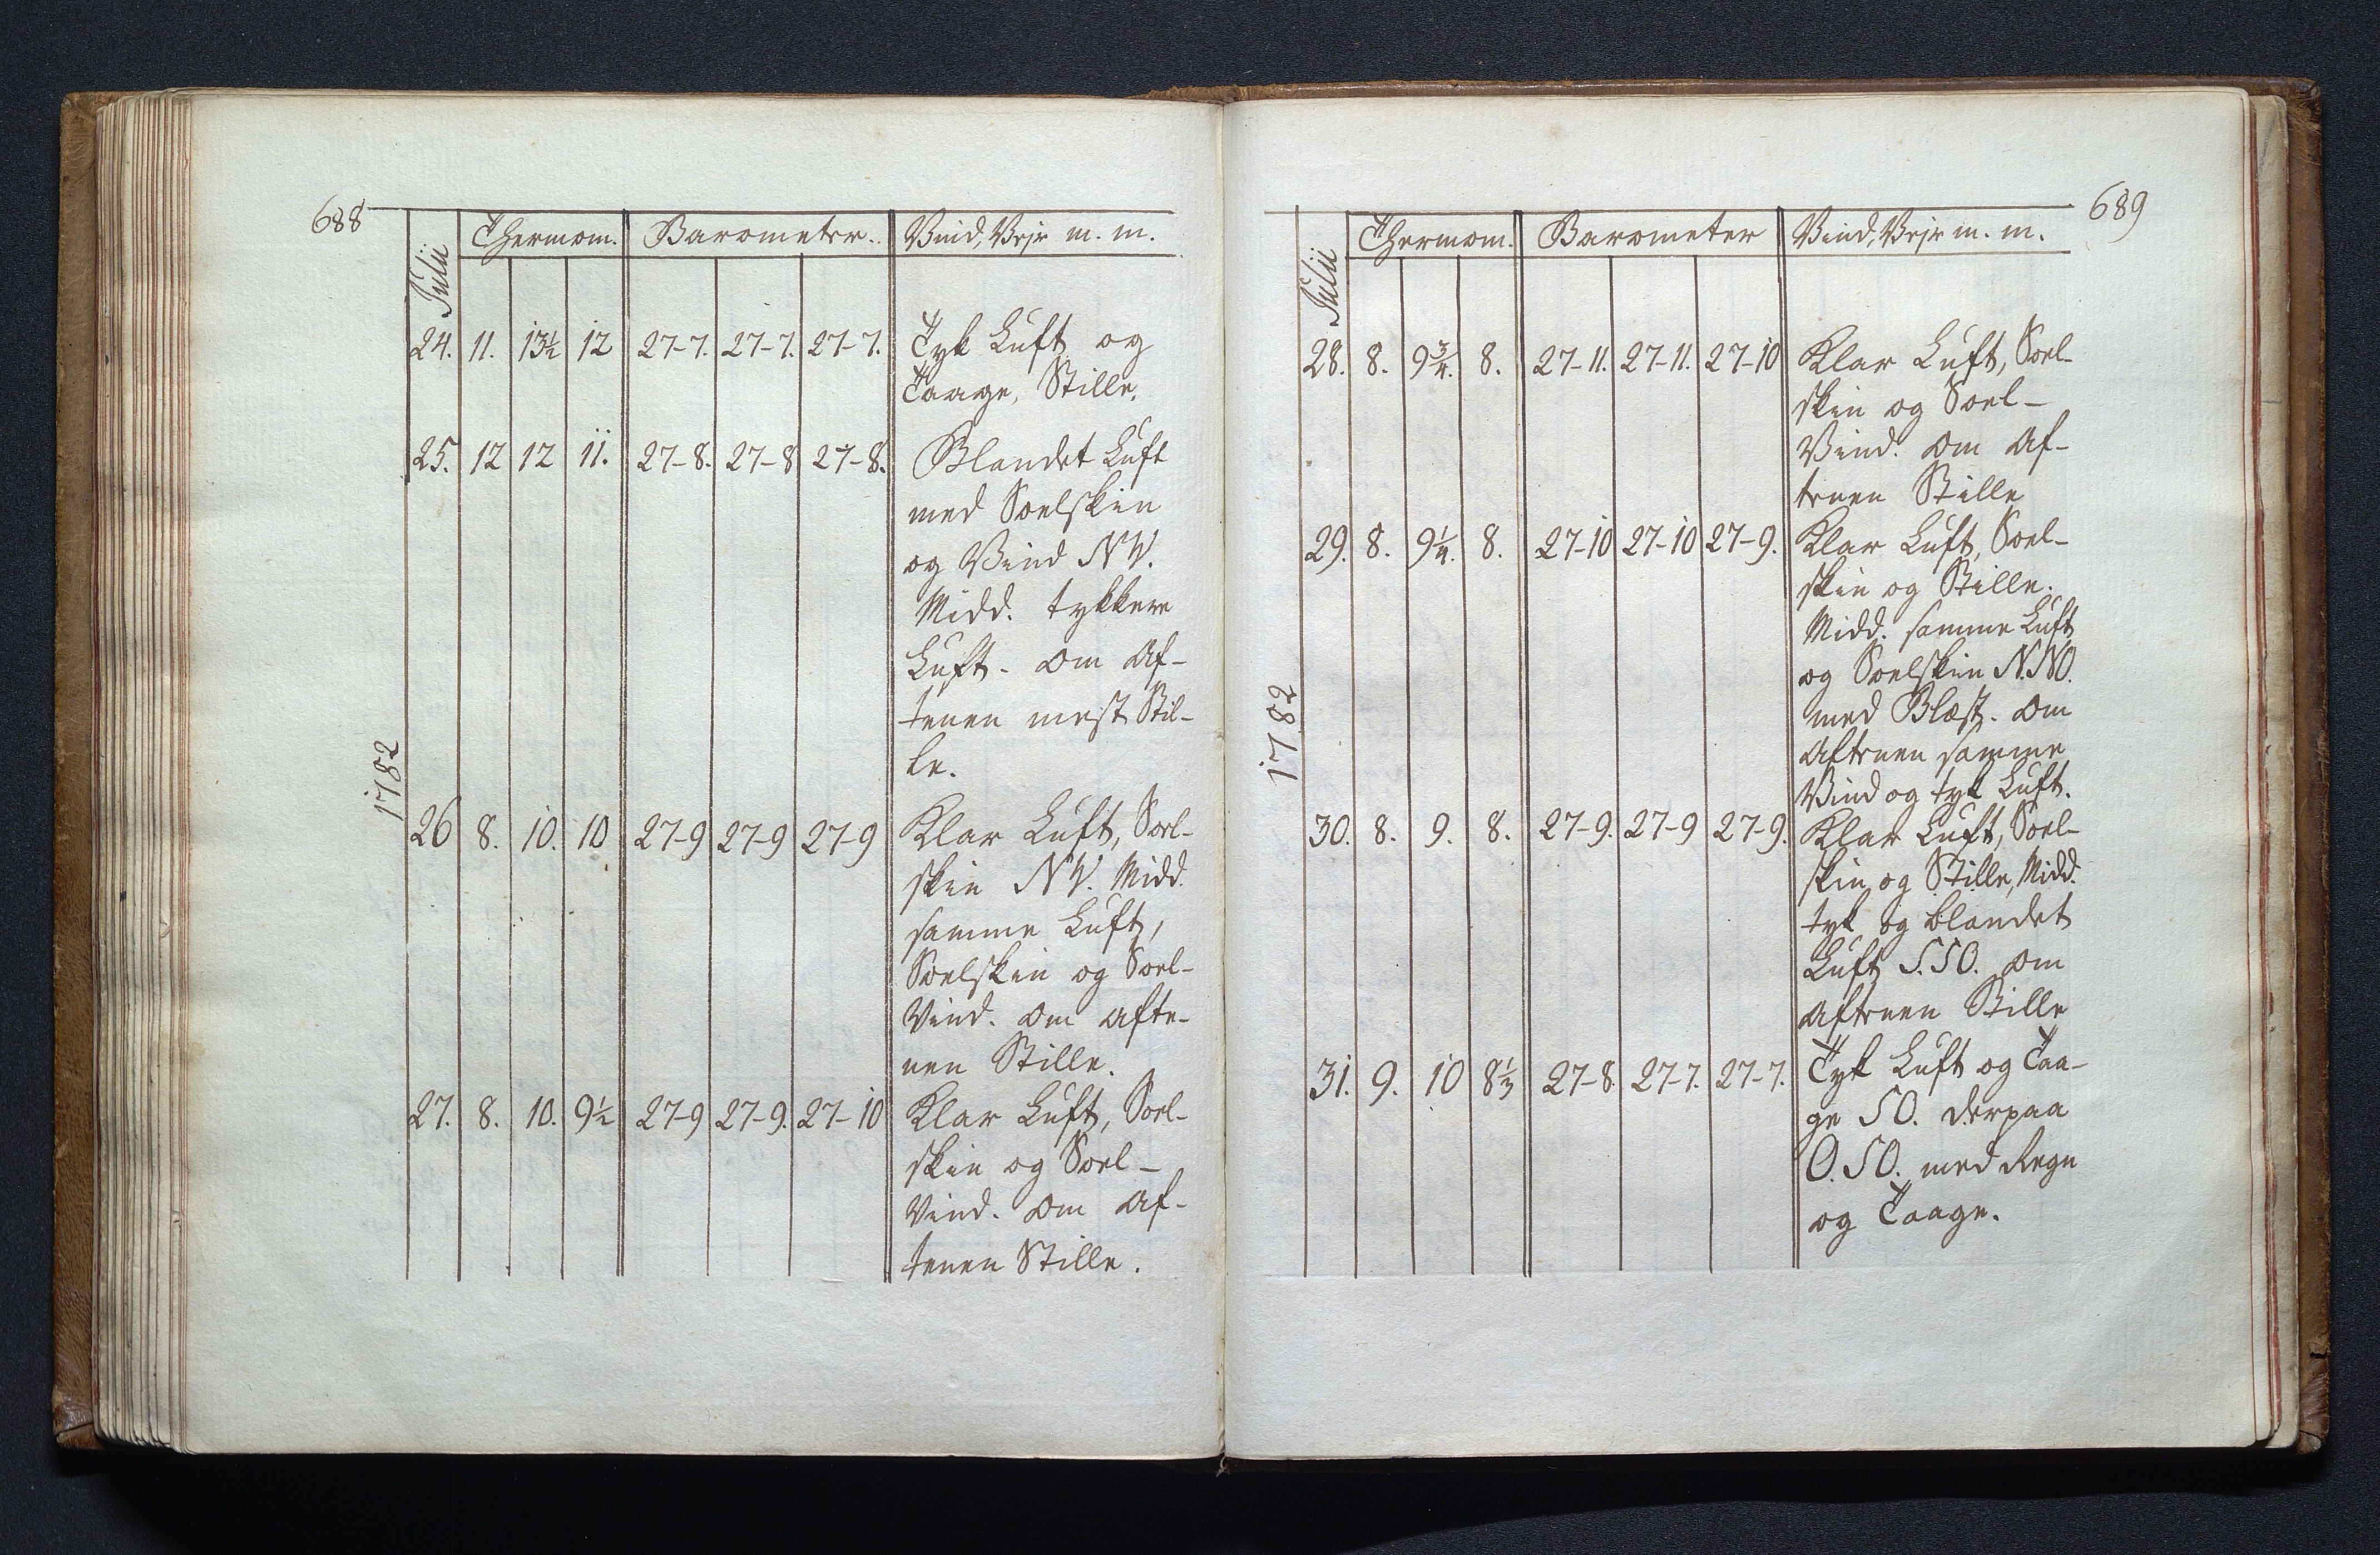 688
Julii Thermom. Barometer. Vind, Vejr m. m.
24. 11. 13½ 12 27-7. 27-7. 27-7. Tyk Luft og
Taage, Stille.
25. 12 12 11. 27-8. 27-8 27-8. Blandet Luft
med Soelskin
og Vind NV.
Midd. tykkere
Luft. om Af-
tenen mest Stil-
le.
1782
26 8. 10. 10 27-9 27-9 27-9 Klar Luft, Soel-
skin NV. Midd.
samme Luft,
Soelskin og Soel-
Vind. om Afte-
nen Stille.
27. 8. 10. 9½ 27-9 27-9. 27-10 Klar Luft, Soel-
skin og Soel-
Vind. om Af-
tenen Stille.
689
Julii Thermom. Barometer Vind, Vejr m. m.
28. 8. 9¾. 8. 27-11. 27-11. 27-10 Klar Luft, Soel-
skin og Soel-
Vind. om Af-
tenen Stille
29. 8. 9¼. 8. 27-10 27-10 27-9. Klar Luft, Soel-
skin og Stille.
Midd. samme Luft
og Soelskin N.NO.
med Blæst. om
Aftenen samme
Vind og tyk Luft.
1782
30. 8. 9. 8. 27-9. 27-9 27-9. Klar Luft, Soel-
skin og Stille, Midd.
tyk og blandet
Luft S.SO. om
Aftenen Stille
31. 9. 10 8⅓ 27-8. 27-7. 27-7. Tyk Luft og Taa-
ge SO. derpaa
O.SO. med Regn
og Taage.